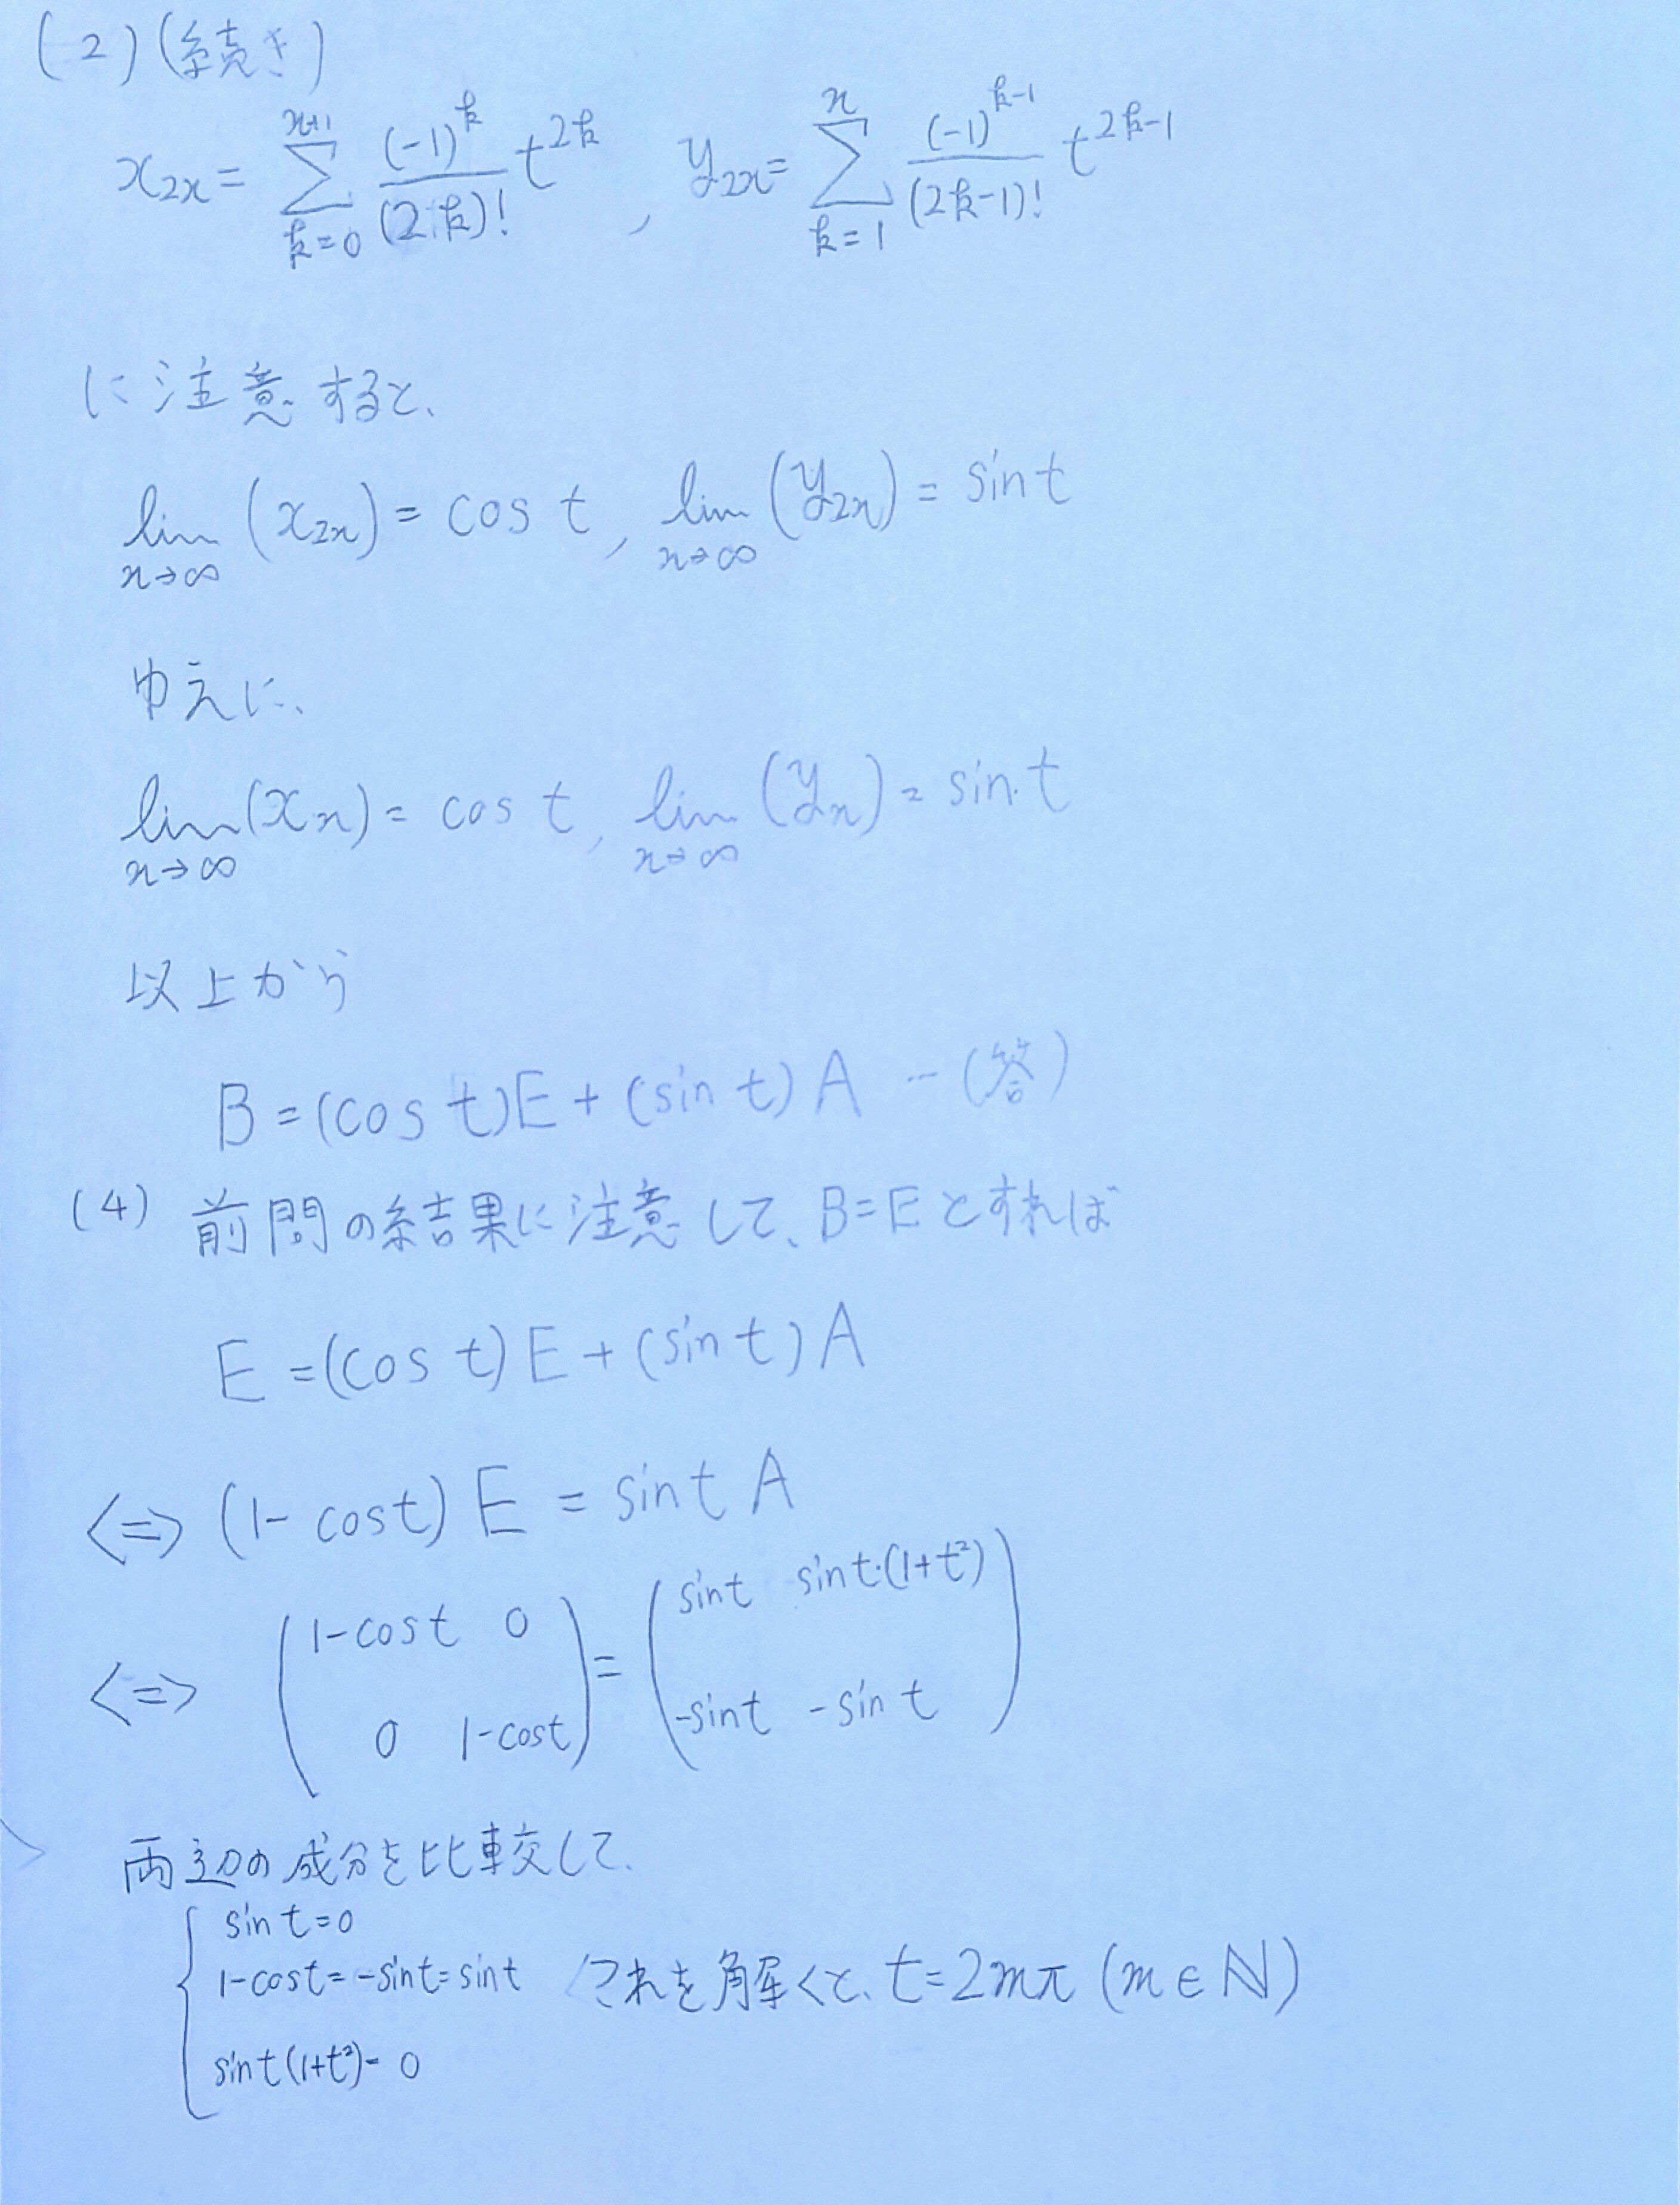 (2)(続き)
x_{2n} = \sum_{k=0}^{n+1} \frac{(-1)^k}{(2k)!} t^{2k}, y_{2n} = \sum_{k=1}^{n} \frac{(-1)^{k-1}}{(2k-1)!} t^{2k-1}
に注意すると、
\lim_{n→∞} (x_{2n}) = cos t, \lim_{n→∞} (y_{2n}) = sin t
ゆえに、
\lim_{n→∞} (x_n) = cos t, \lim_{n→∞} (y_n) = sin t
以上から
B = (cos t)E + (sin t)A … (答)
(4) 前問の結果に注意して、B=Eとすれば
E = (cos t)E + (sin t)A
<=> (1-cos t) E = sin t A
<=> \begin{pmatrix} 1-cos t & 0 \\ 0 & 1-cos t \end{pmatrix} = \begin{pmatrix} sin t & sin t・(1+t^2) \\ -sin t & -sin t \end{pmatrix}
両辺の成分を比較して、
{ sin t = 0
1-cos t = -sin t = sin t これを解くと、t=2mπ (m∈ℕ)
sin t(1+t^2) = 0